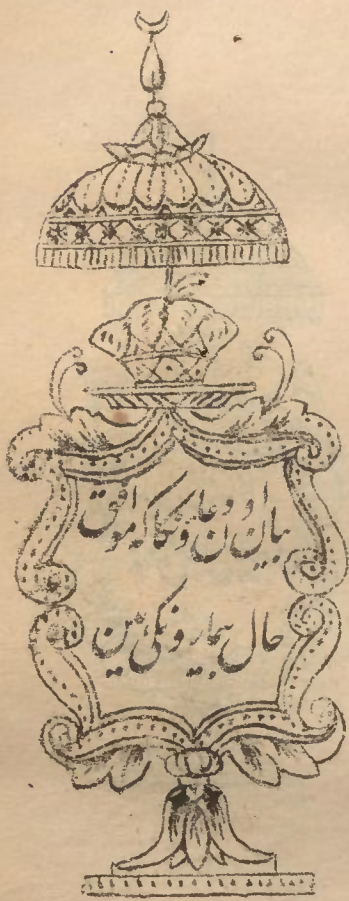 بیان اون دعاونکا کہ موافق
حال بیمارونکی ہین